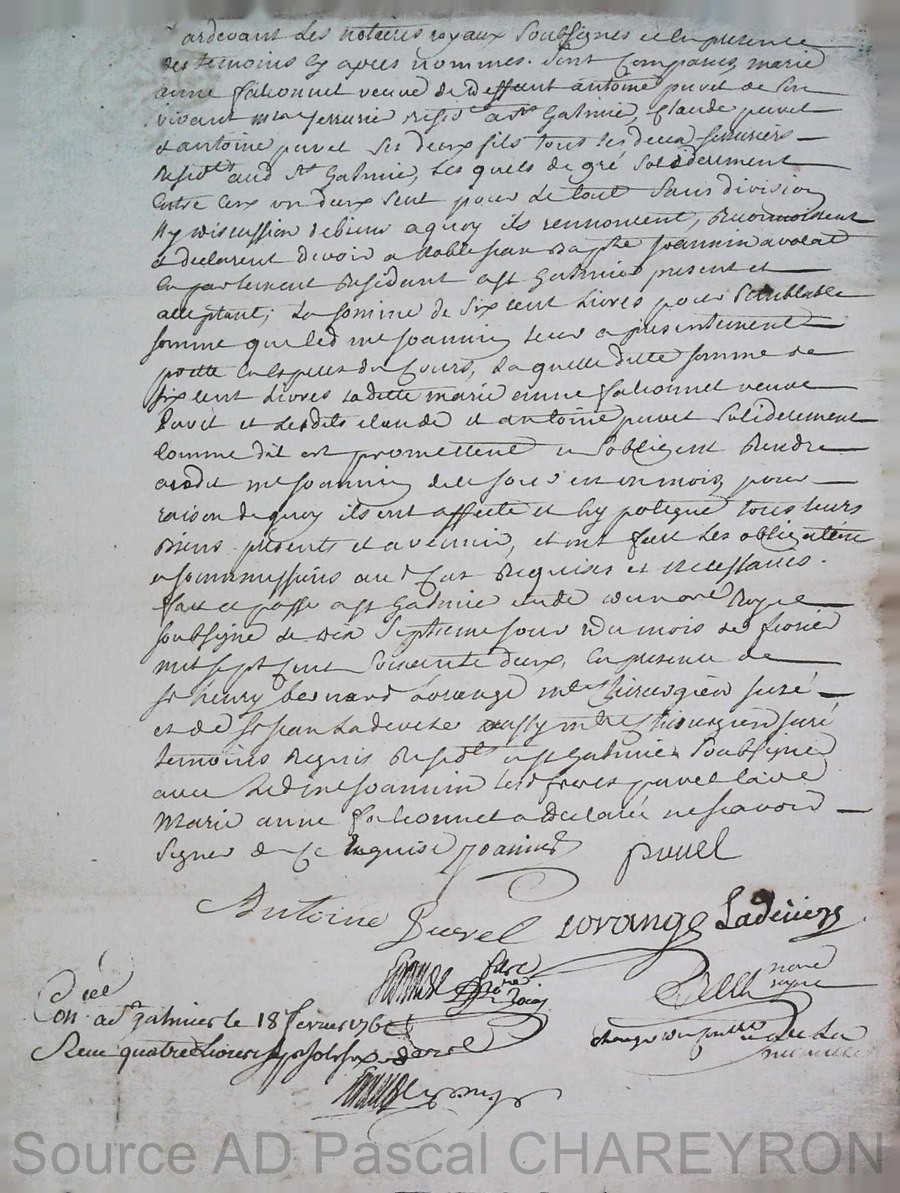 ardevant Les notaires royaux Soubsignes et En presence
des temoins Cy apres nommes. Sont Comparus marie
anne faconnet veuve de deffunt antoine puvel de Son
vivant me Serrurier resid a St Galmier, Claude puvel
et antoine puvel Ses deux fils tous les deux Serruriers
Resid aud St Galmier, Les quels de gré Soliderement
Entre Eux un deux Seul pour Le tout Sans division
ny discussion de biens a quoy ils rennoncent, Reconnoissent
et declarent devoir a Noble jean Baptiste Joannin avocat
En parlement Residant a St Galmier present et
acceptant, La Somme de Six cent Livres pour Semblable
Somme que led me Joannin Leur a presentement
prette en Especes du Cours, Laquelle ditte Somme de
Six cent Livres Laditte marie anne faconnet veuve
et Lesdits claude et antoine puvel Soliderement
Comme dit est promettent et Sobligent Rendre
audit me Joannin dans un mois pour
raison de quoy ils ont affecté et hypotequé tous leurs
Biens presents et a venir, et ont fait Les obligations
Soummissions aud Cas Requises et necessaires.
fait et passé a St Galmier etude du nore Royal
Soubsigné Le dix Septieme jour du mois de fevrier
mil Sept Cent Soixante deux, En presence de
Sr henry bernard Lorange me Chirurgien juré
et de Sr jean Ladeveze aussy me Chirurgien juré
temoins Requis Resid a St Galmier Soubsigné
avec Led me Joannin Lesd freres puvel Lad
Marie anne faconnet a declaré ne Scavoir
Signer de Ce Enquise Joannin puvel
Antoine Puvel Lorange Ladeveze
nore
royal
Con a St galmier le 18 fevrier 1762
Receu quatre Livres Sols Six d